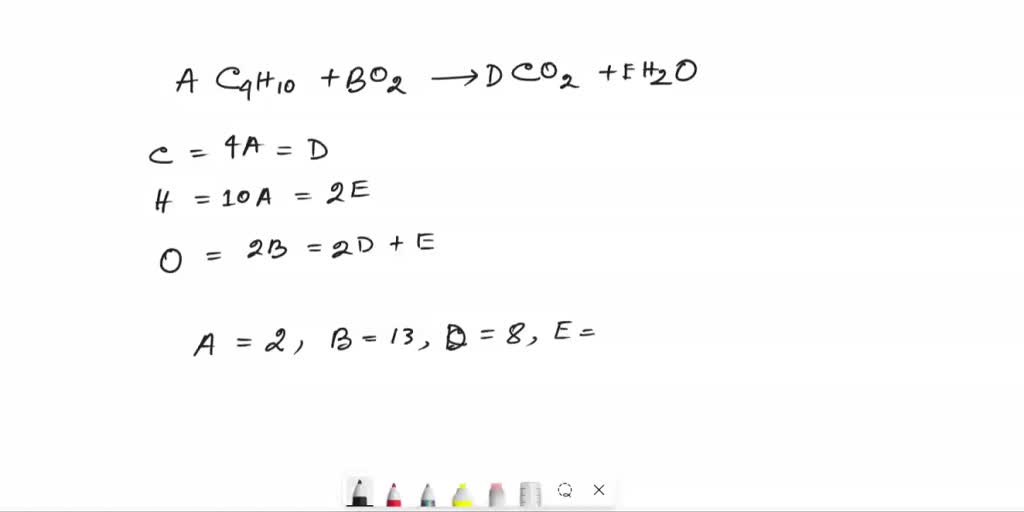 A C4H10 + BO2 → D CO2 + E H2O
C = 4A = D
H = 10A = 2E
O = 2B = 2D + E
A = 2, B = 13, D = 8, E =